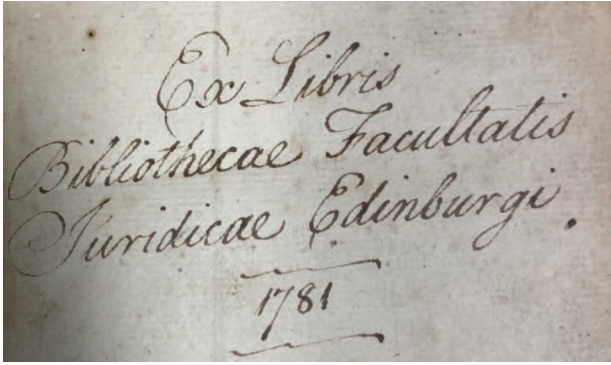 Ex Libris
Bibliothecae Facultatis
Juridicae Edinburgi.
1781